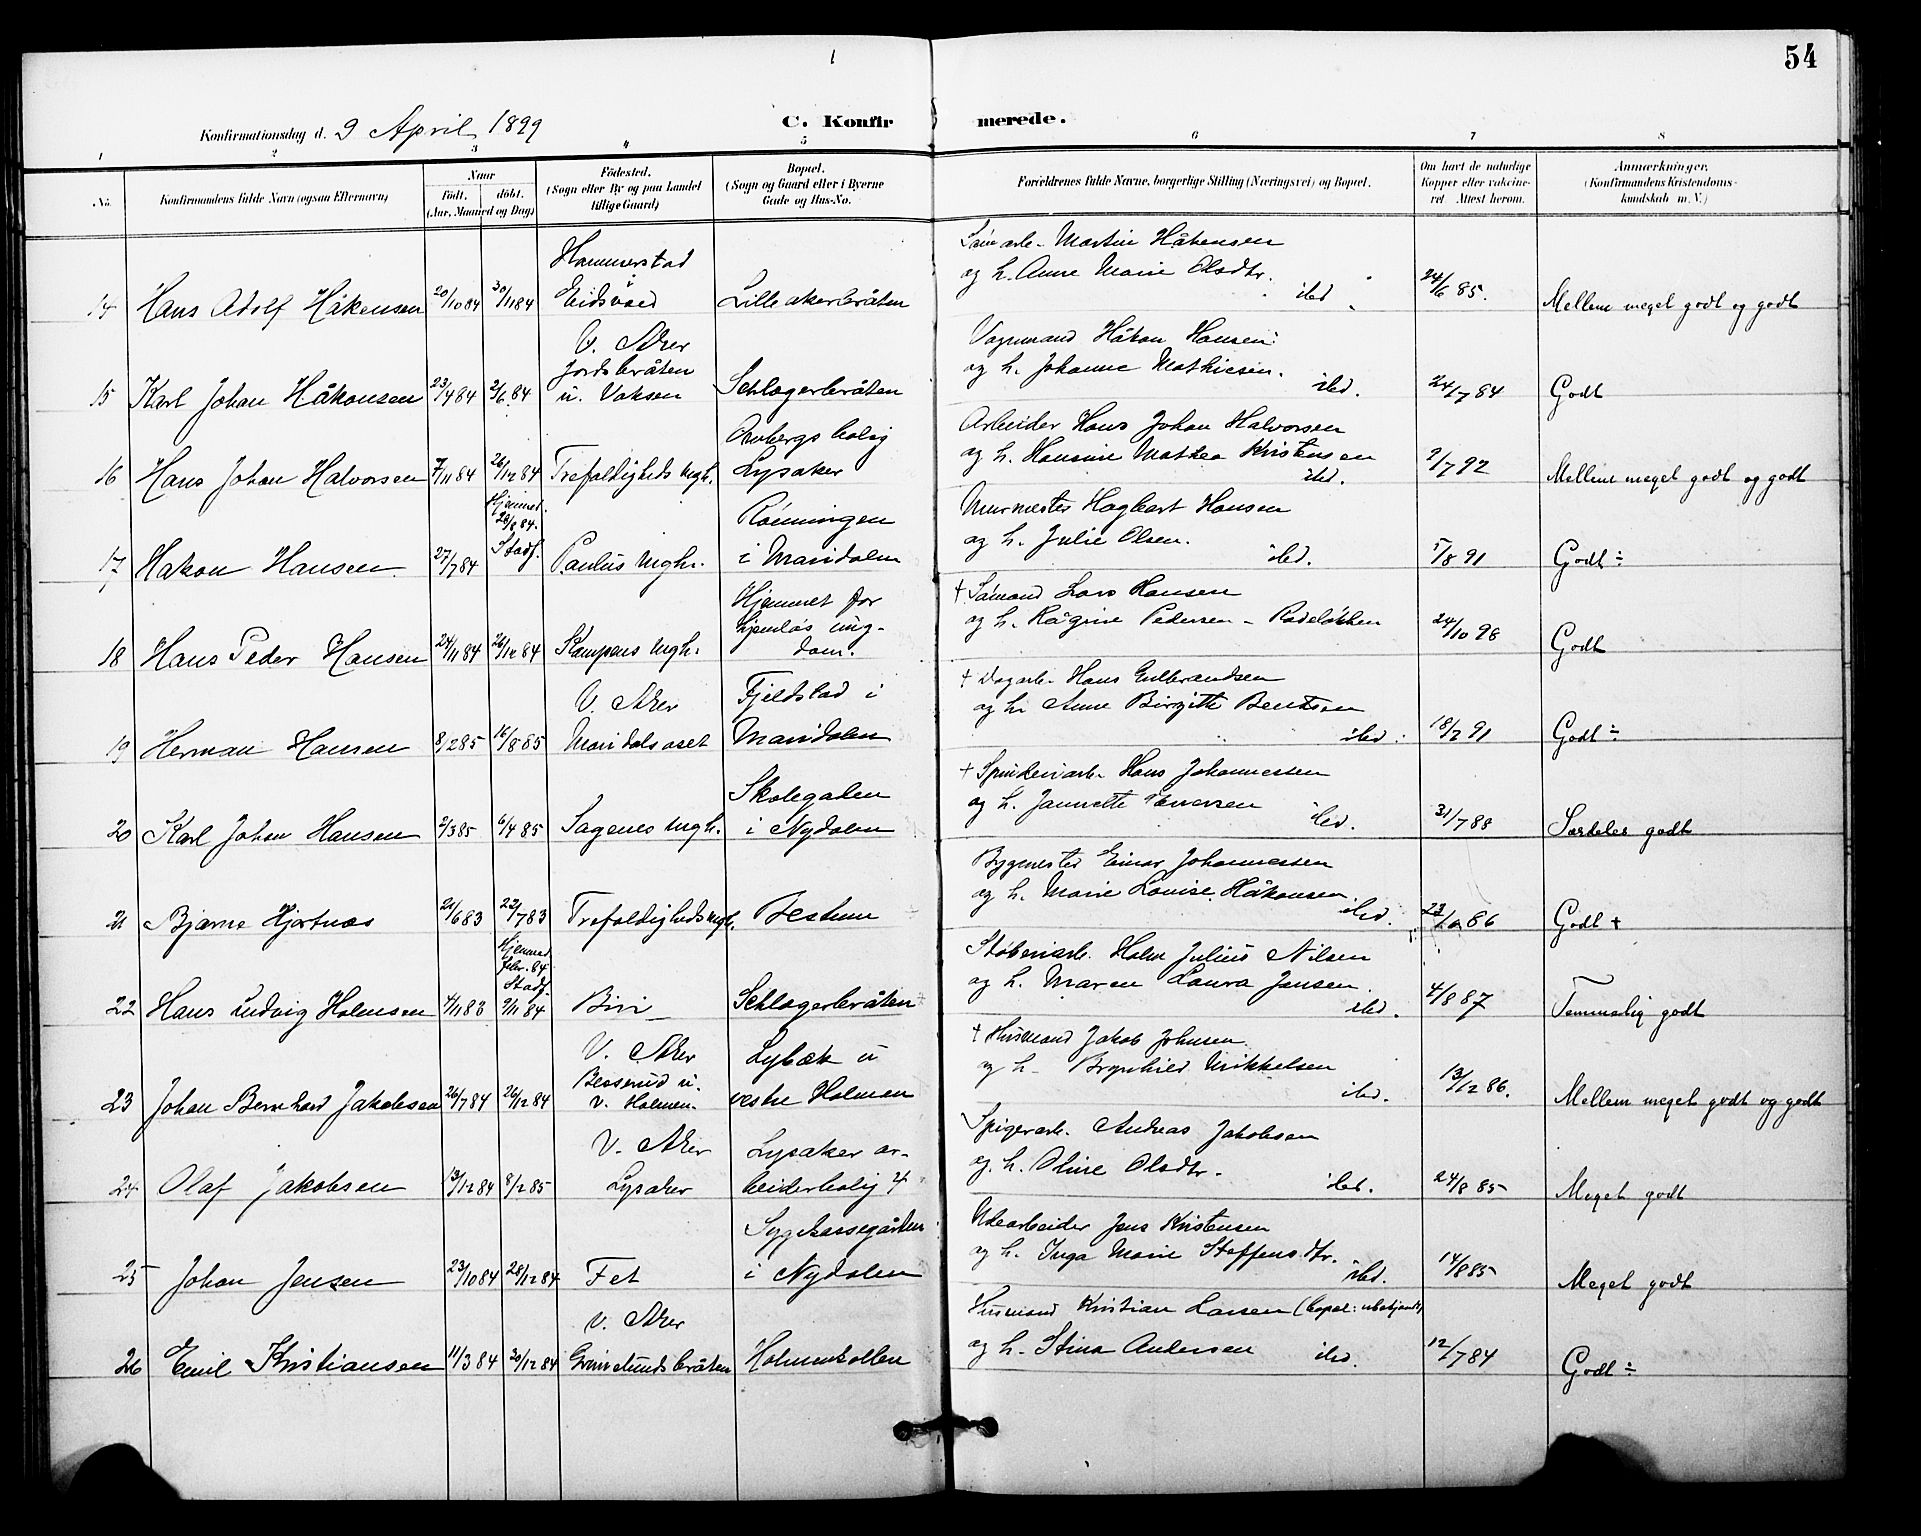 54
Konfirmationsdag d. 9 April 1899
C. Konfir merede.
1 2 3 4 5 6 7 8
No. Konfirmandens fulde Navn (ogsaa Efternavn)
Naar
Født. døbt.
(Aar, Maaned og Dag)
Fødested.
(Sogn eller By og paa Landet
tillige Gaard)
Bopæl.
(Sogn og Gaard eller i Byerne
Gade og Hus-No.
Forældrenes fulde Navne, borgerlige Stilling (Næringsvei) og Bopæl.
Om havt de naturlige
Kopper eller vakcine-
ret Attest herom.
Anmærkninger.
(Konfirmandens Kristendoms-
kundskab m. V.)
Hammerstad
Martin Håkensen
og h. Anne Marie Olsdtr.
14 Hans Adolf Håkensen 20/10 84 30/11 84 Eidsvold Lilleakerbråten ibd. 24/6 85. Mellem meget godt og godt
V. Aker
Vognmand Håkon Hansen
Jordsbråten
og h. Johanne Mathiesen.
15 Karl Johan Håkonsen 23/4 84 2/6 84 u. Voksen Schlagerbråten ibd. 24/7 84 Godt
bolig
Arbeider Hans Johan Halvorsen
og h. Hansine Mathea Kristensen
16 Hans Johan Halvorsen 7/11 84 26/12 84 Trefoldigheds mgh. Lysaker ibd. 2/7 92 Mellem meget godt og godt
Hjemmed.
28/8 84.
Rønningen
Murmester Hagbart Hansen
og h. Julie Olsen.
17 Håkon Hansen 27/7 84 Stadf. Paulus mgh. i Maridalen ibd. 5/8 91 Godt ÷
Hjemmet for
† Sømand Lars Hansen
hjemløs ung-
og h. Ragine Pedersen - Rodeløkken
18 Hans Peder Hansen 24/11 84 26/12 84 Kampens mgh. dom. 24/10 98 Godt
V. Aker Fjeldstad i
† Dagarb. Hans Gulbrandsen
og h. Anne Birgitte Bentsen
19 Herman Hansen 8/2 85 16/8 85 Maridalsoset Maridalen ibd. 18/2 91 Godt ÷
Skolegaden
† Spinderiarb. Hans Johannessen
og h. Jannette Iversen
20 Karl Johan Hansen 2/3 85 6/4 85 Sagenes mgh. i Nydalen ibd. 31/7 88 Særdeles godt
Bygmester Einar Johannessen
og h. Marie Lovise Håkonsen
21 Bjarne Hjortnæs 21/6 83 22/7 83 Trefoldigheds mgh. Bestum ibd. 23/10 86 Godt +
Hjemmed.
febr. 84
Støberiarb. Holm Julius Nilsen
Stadf.
og h. Maren Laura Jensen
22 Hans Ludvig Holmsen 4/11 83 9/11 84 Biri Schlagerbråten ibd. 4/8 87 Temmelig godt
V. Aker Lybæk u
† Husmand Jakob Johnsen
Besserud u.
og h. Brynhild Mikkelsen
23 Johan Bernhard Jakobsen 26/7 84 26/12 84 v. Holmen. vestre Holmen ibd. 13/12 86. Mellem meget godt og godt
V. Aker Lysaker ar-
Spigerarb. Andreas Jakobsen
og h. Oline Olsdtr.
24 Olaf Jakobsen 13/12 84 8/2 85 Lysaker beiderbolig 4 ibd. 24/8 85 Meget godt
Sygekassegården
Udearbeider Jens Kristensen
og h. Inga Marie Steffensdtr.
25 Johan Jensen 23/10 84 28/12 84 Fet i Nydalen ibd. 14/8 85 Meget godt
V. Aker
Husmand Kristian Larsen (bopæl: ubekjendt)
og h. Stina Andersen
26 Emil Kristiansen 11/3 84 30/12 84 Grimelundsbråten Holmenkollen ibd. 12/7 84 Godt ÷